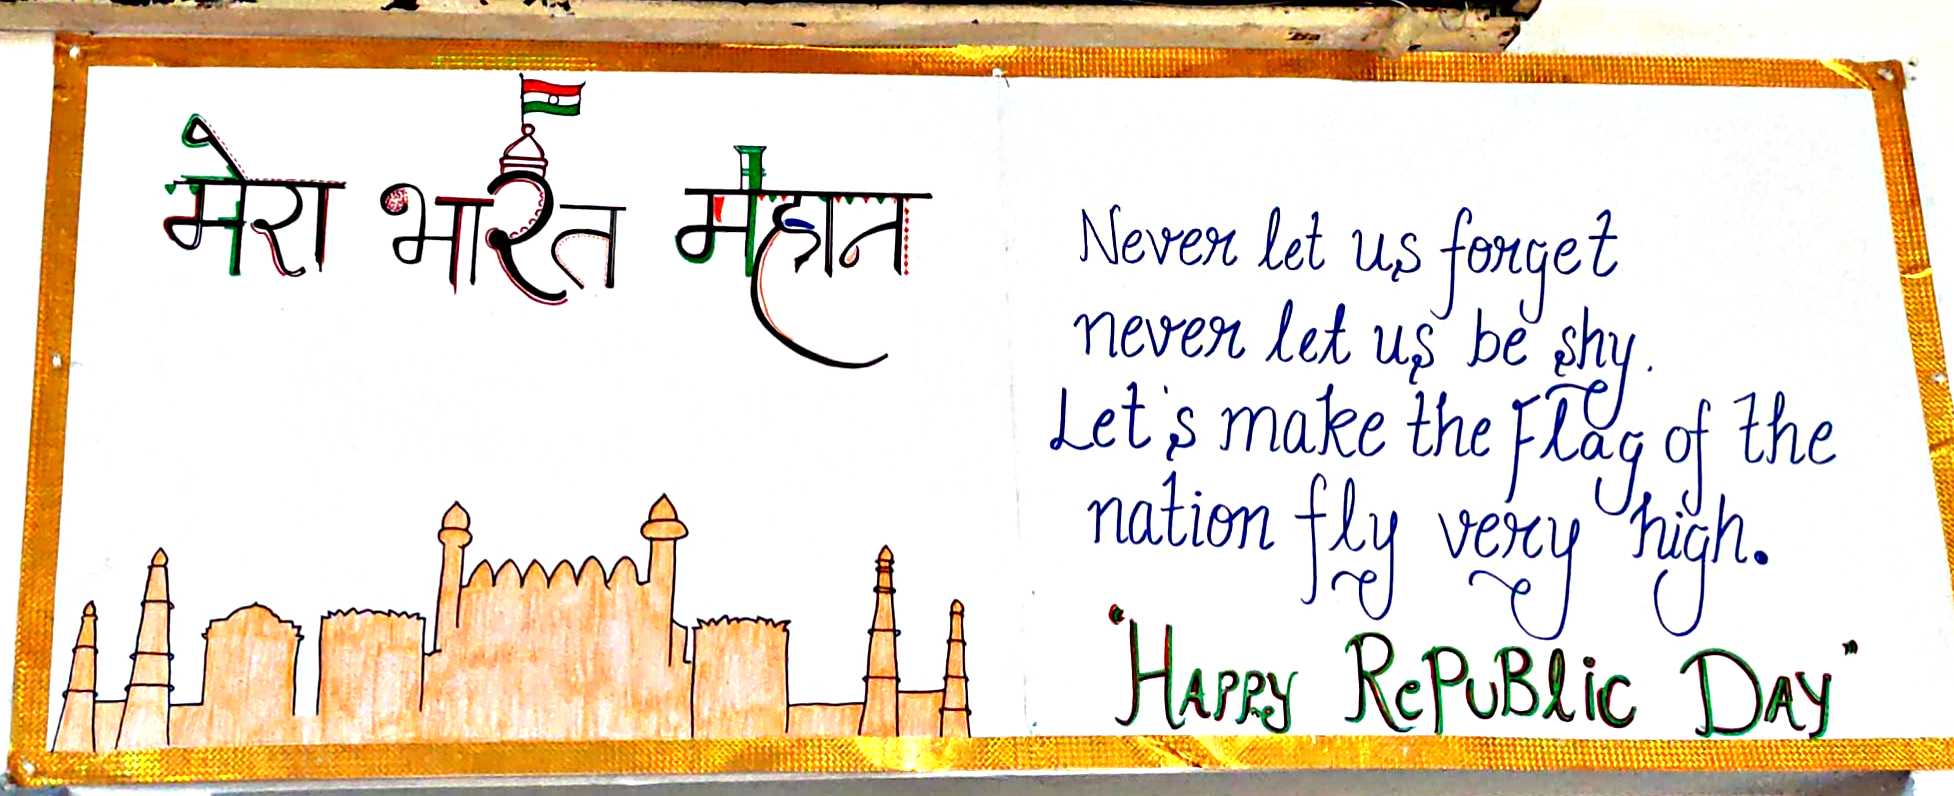 मेरा भारत महान
Never let us forget
never let us be shy.
Let's make the Flag of the
nation fly very high.
"HAPPY RePUBlic DAY"